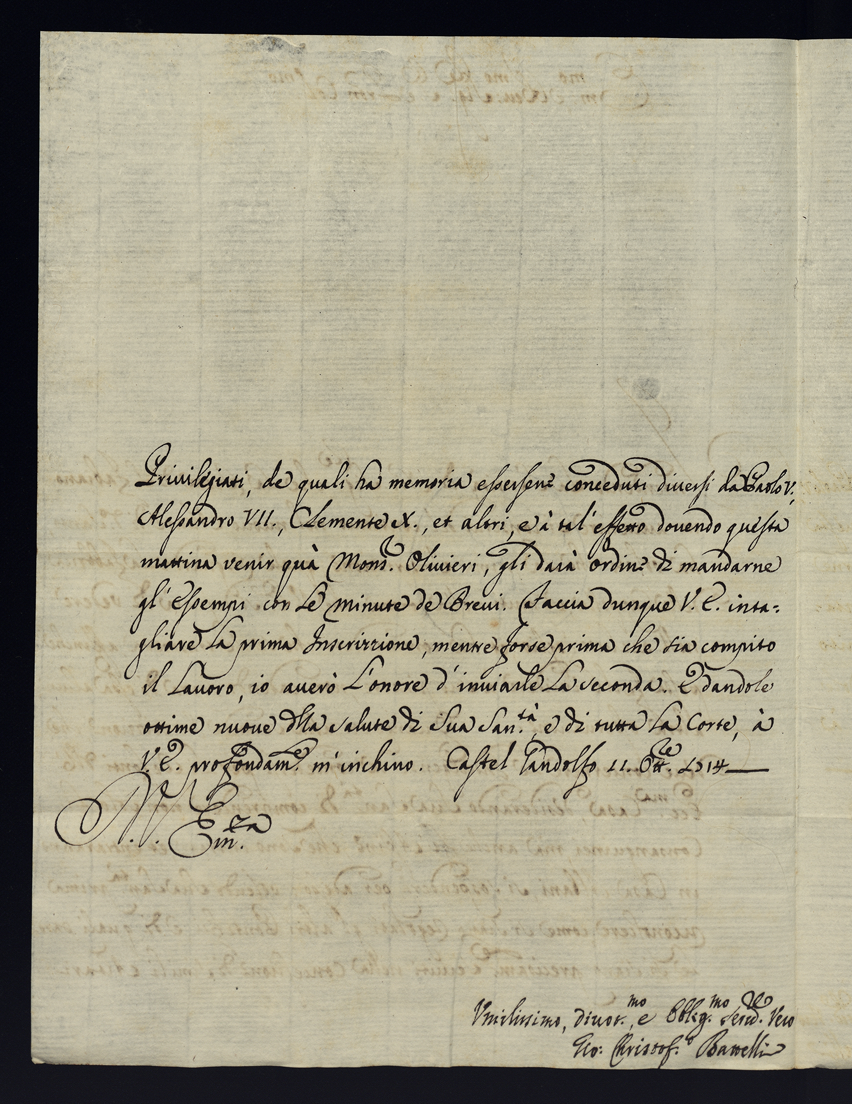 Privilegiati, de quali ha memoria essersene conceduti diversi da Paolo V.,
Alessandro VII., Clemente X., et altri, e à tal' effetto dovendo questa
mattina venir quà Mons.r Olivieri, gli darà ordine di mandarne
gl' essempi con le minute de Brevi. Faccia dunque V. E. inta=
gliare la prima Inscrizzione, mentre forse prima che sia compito
il lavoro, io averò l'onore d'inviarle la seconda. E dandole
ottime nuove della salute di Sua San.tà, e di tutta la Corte, à
V. E. profondam.te m'inchino. Castel Gandolfo 11. Ott.re 1714
Em.za
Umilissimo, divot.mo, e Obblig.mo Serv.re Vero
Gio: Christof.o Battelli